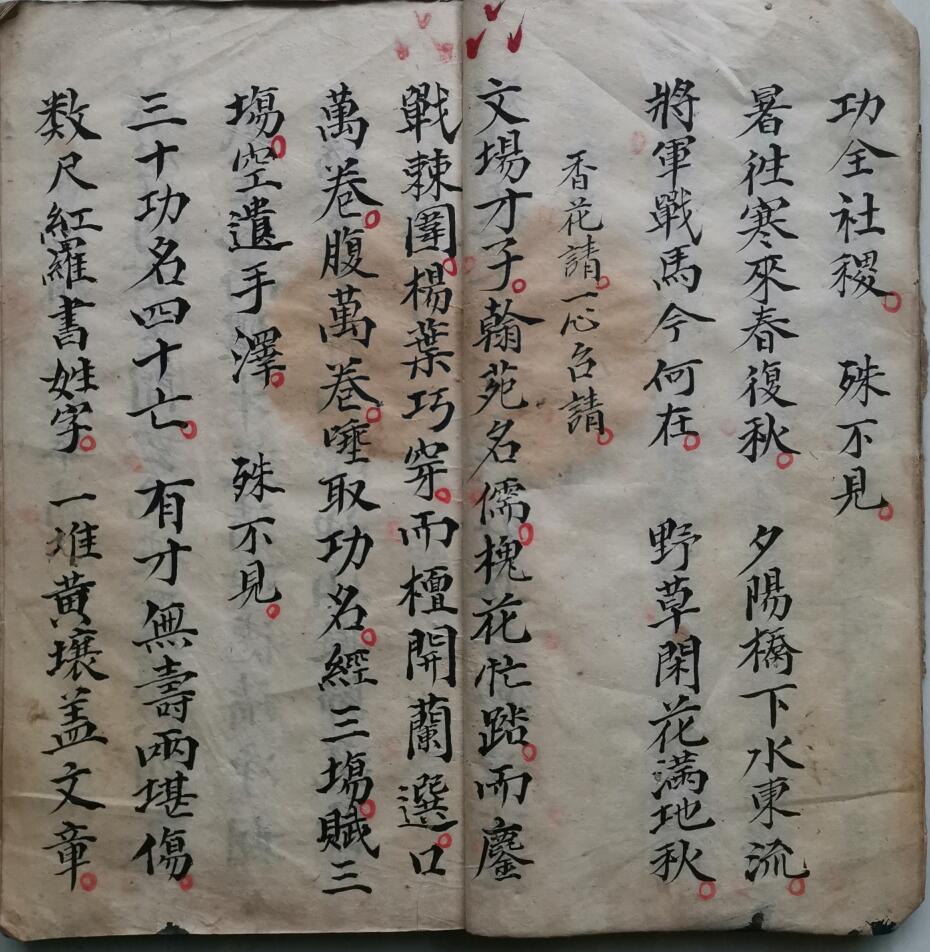 功全社稷。 殊不見。
暑徃寒來春復秋。 夕陽橋下水東流。
將軍戰馬今何在。 野草閑花滿地秋。
香花請。一心召請。
文場才子。翰苑名儒。槐花忙踏。而鏖
戰棘圍。楊葉巧穿。而檀開蘭選。口
萬卷。腹萬卷。唾取功名。經三塲。賦三
塲。空遺手澤。 殊不見。
三十功名四十亡。 有才無壽两堪傷。
数尺紅羅書姓字。 一堆黄壤盖文章。